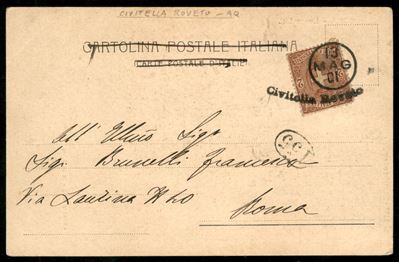 CIVITELLA ROVETO - AQ
CARTOLINA POSTALE ITALIANA
CARTE POSTALE D'ITALIE
13
MAG
01
Civitella Roveto
All' Illmo Sigr
Sigr Brunelli Francesco
Via
Roma